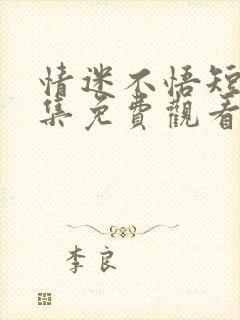 情迷不悟短
集免費觀看
李良